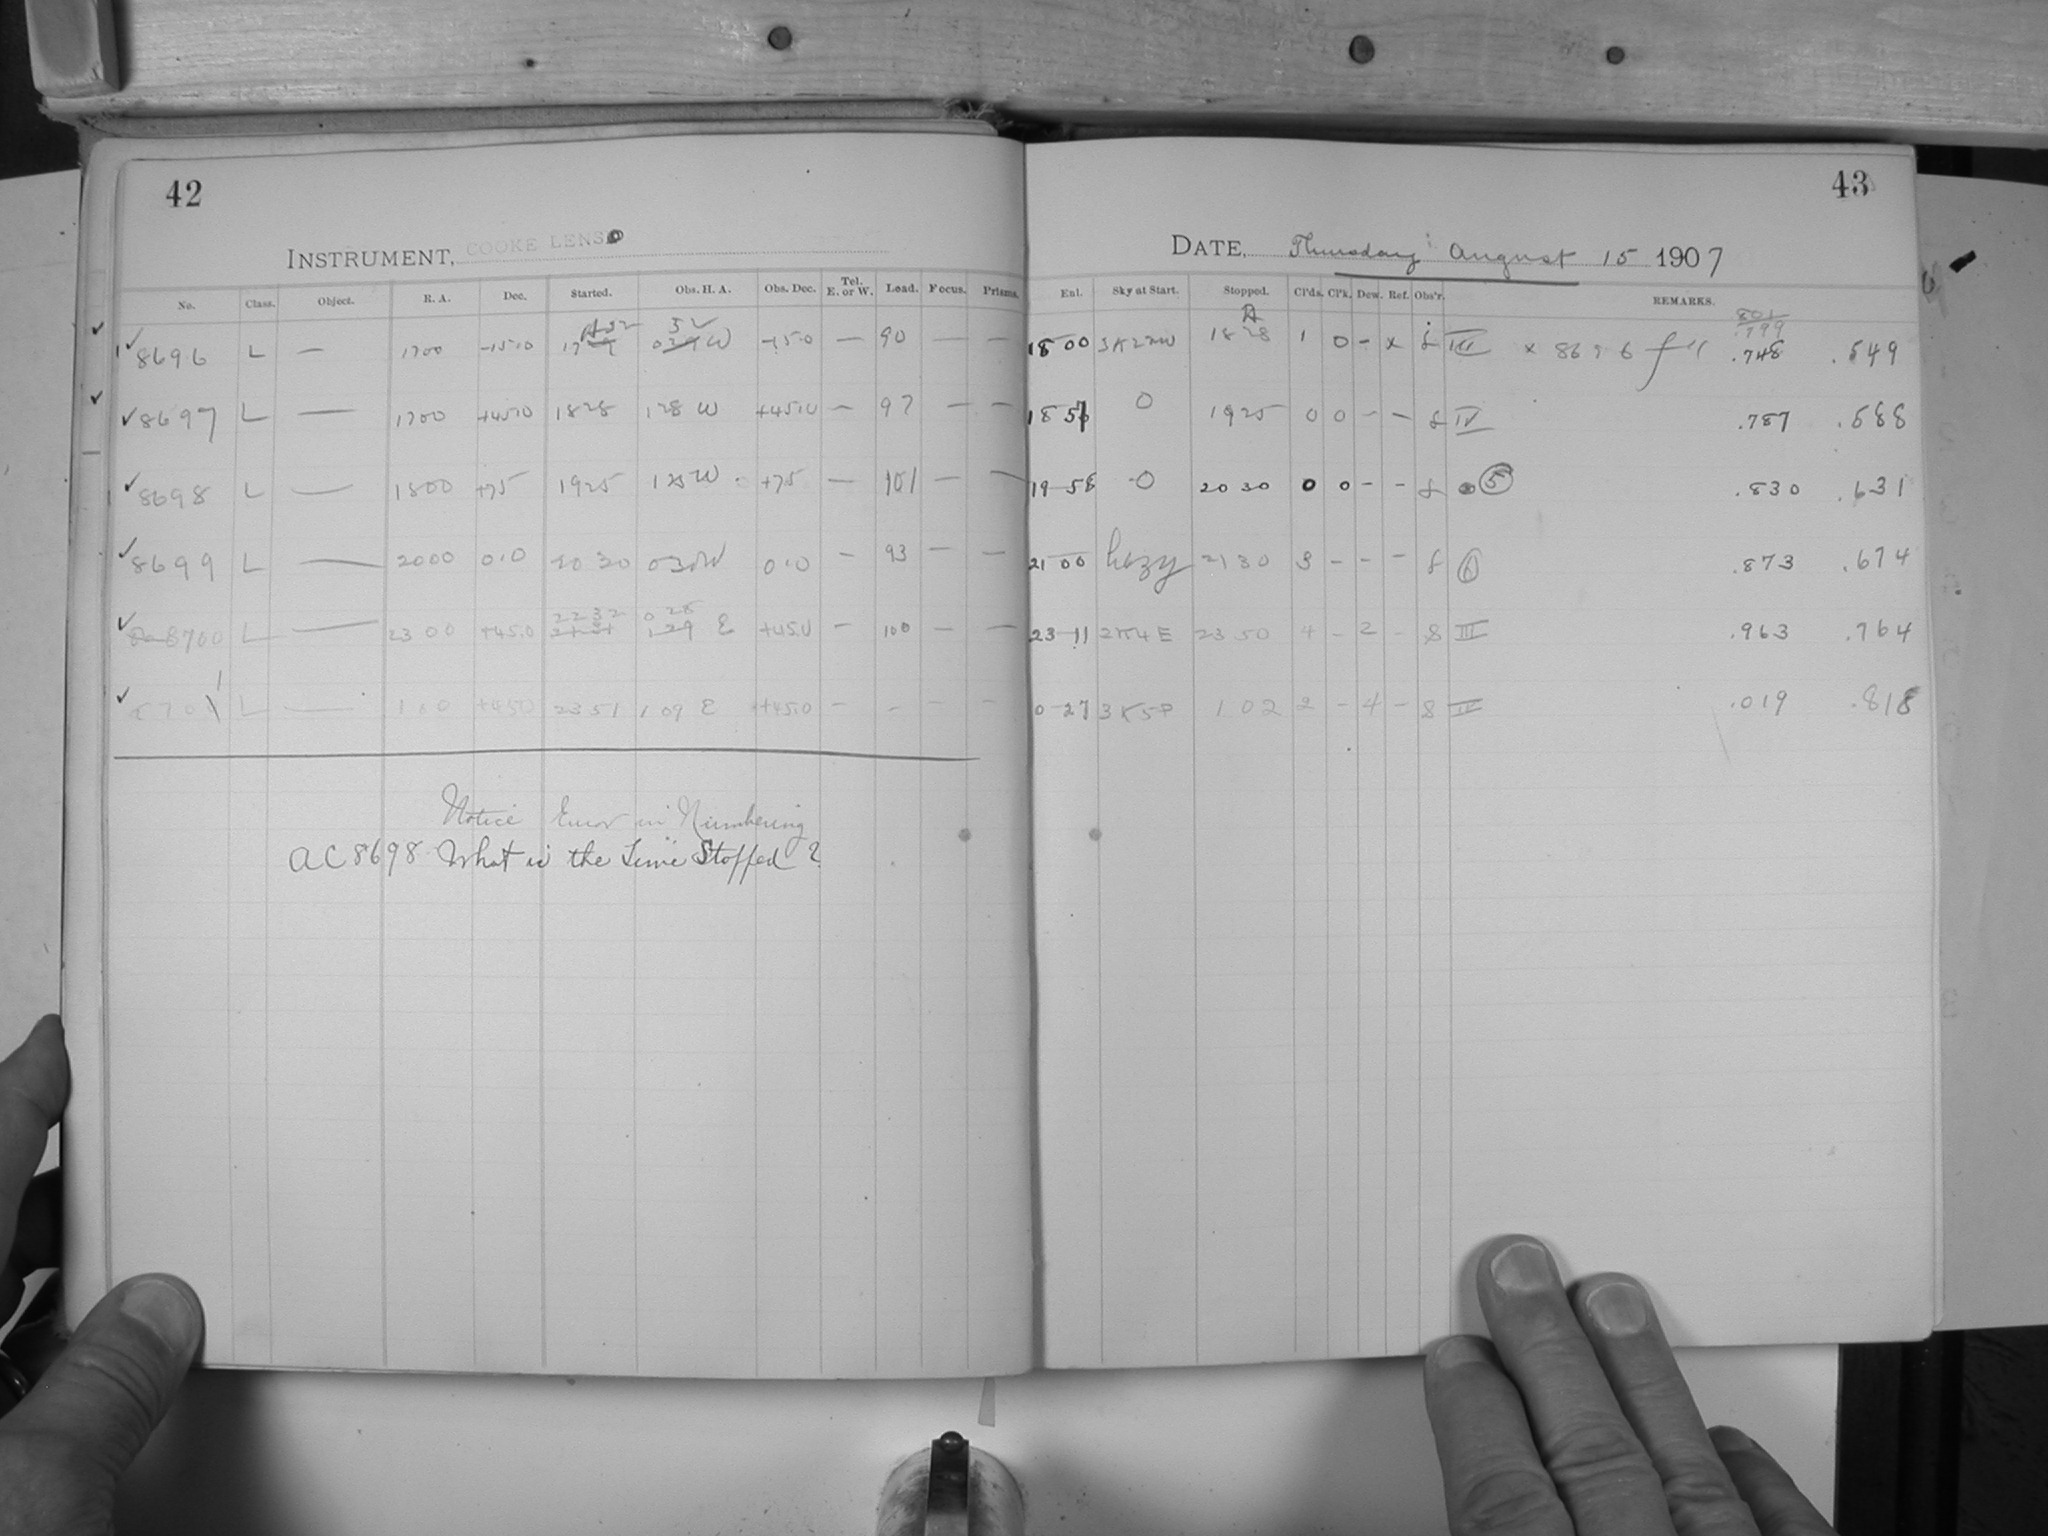 42
INSTRUMENT, COOKE LENS
No. Class. Object. R. A. Dec. Started. Obs. H. A. Obs. Dec. Tel. E. or W. Load. Focus. Prisms.
8696 L — 1700 -15.0 -15.0 90 — —
8697 L — 1700 +45.0 1828 128 W +45.0 — 97 — —
8698 L — 1800 +75 1925 125 W +75 — 101 — —
8699 L — 2000 0.0 2030 030W 0.0 — 93 — —
8700 L — 2300 +45.0 2232 0 28 E +45.0 — 100 — —
8701 L — 100 +450 2351 109 E +45.0 — - — —
Notice Error in Numbering
AC 8698 What is the Time Stopped?
43
DATE, Thursday August 15 1907
Ent. Sky at Start. Stopped. Cl'ds. Cl'k. Dew. Ref. Obs'r. REMARKS.
801
.799
18 00 1828 1 0 - x III x 8696 .748 .549
18 57 0 1925 0 0 - - IV .787 .588
19-58 0 2030 0 0 - - 5 .830 .631
21 00 hazy 2130 3 - - - 6 .873 .674
23-11 2K4E 2350 4 - 2 - 8 III .963 .764
0-27 102 2 - 4 - 8 IV .019 .818